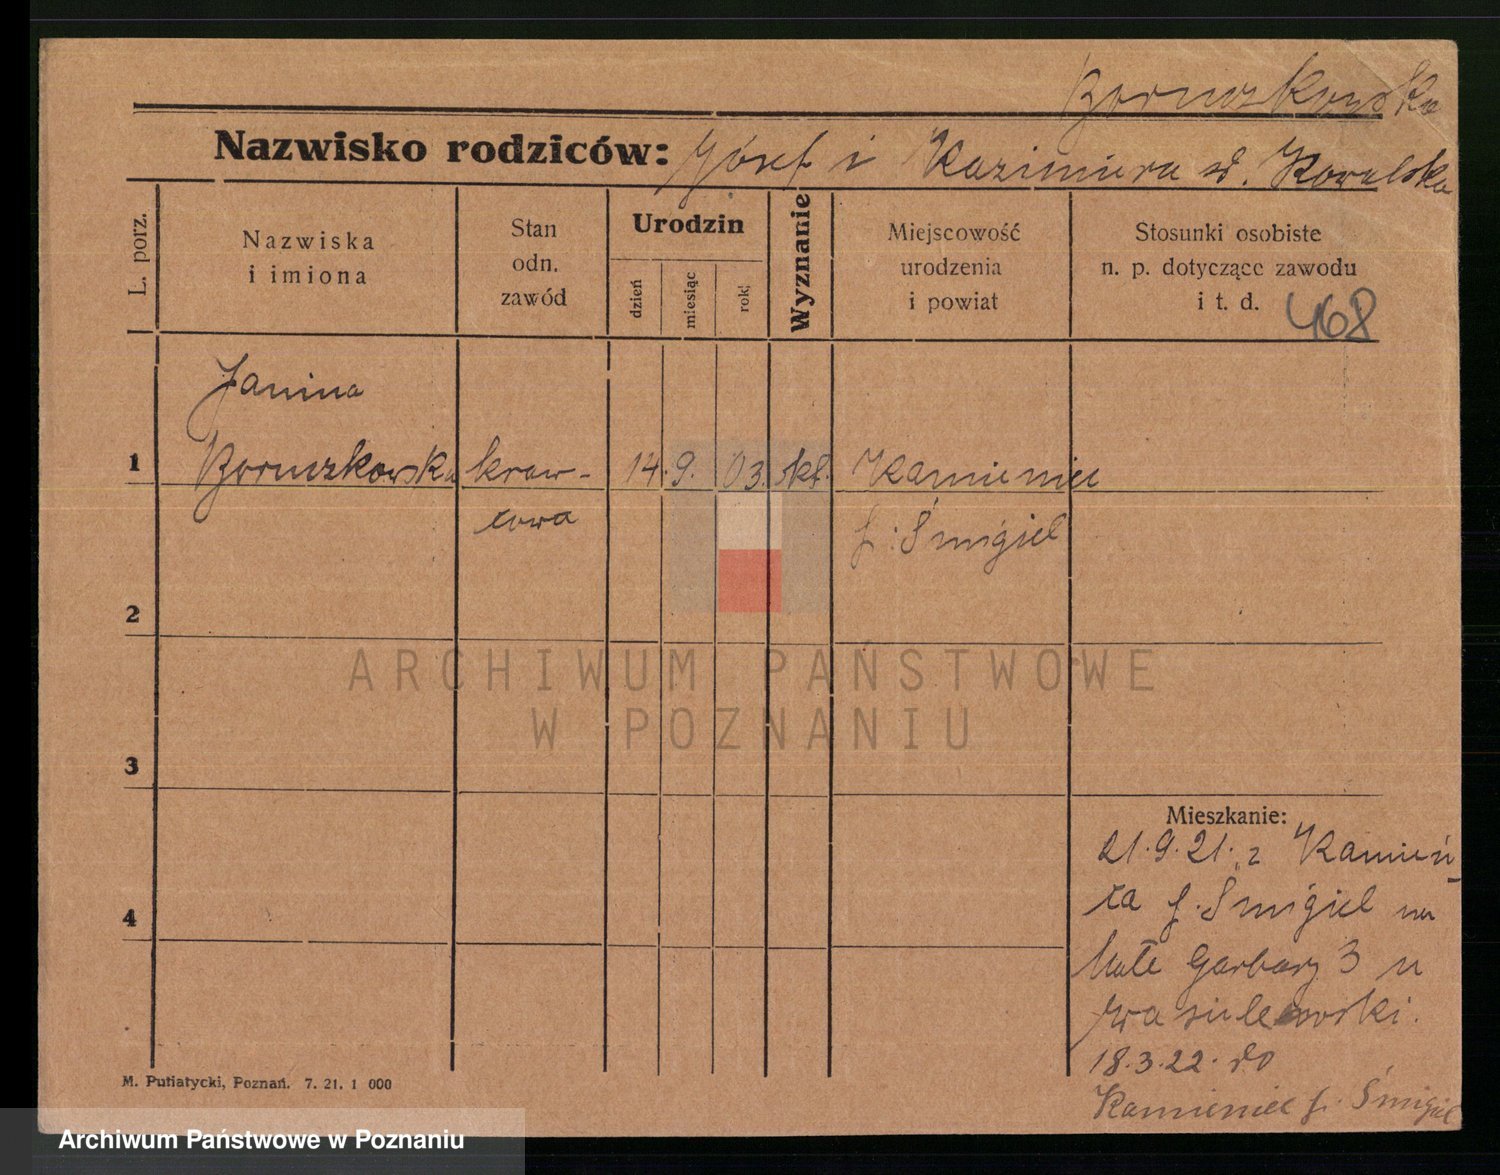 Boruszkowska
Nazwisko rodziców: Józef i Kazimiera d. Kowalska
L. porz.
Nazwiska
i imiona
Stan
odn.
zawód
Urodzin
dzień
miesiąc
rok
Wyznanie
Miejscowość
urodzenia
i powiat
Stosunki osobiste
n. p. dotyczące zawodu
i t. d.
468
Janina
1 Boruszkowska kraw- 14. 9. 03. kt. Kamieniec
cowa p. Śmigiel
2
3
4
ARCHIWUM PAŃSTWOWE
W POZNANIU
Mieszkanie:
21.9.21. z Kamień-
ca p. Śmigiel na
Małe Garbary 3 u
18.3.22. do
Kamieniec p. Śmigiel
M. Putiatycki, Poznań. 7. 21. 1 000
Archiwum Państwowe w Poznaniu